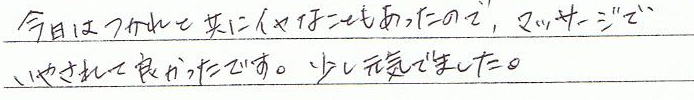 今日はつかれと共にイヤなこともあったので、マッサージで
いやされて良かったです。少し元気でました。